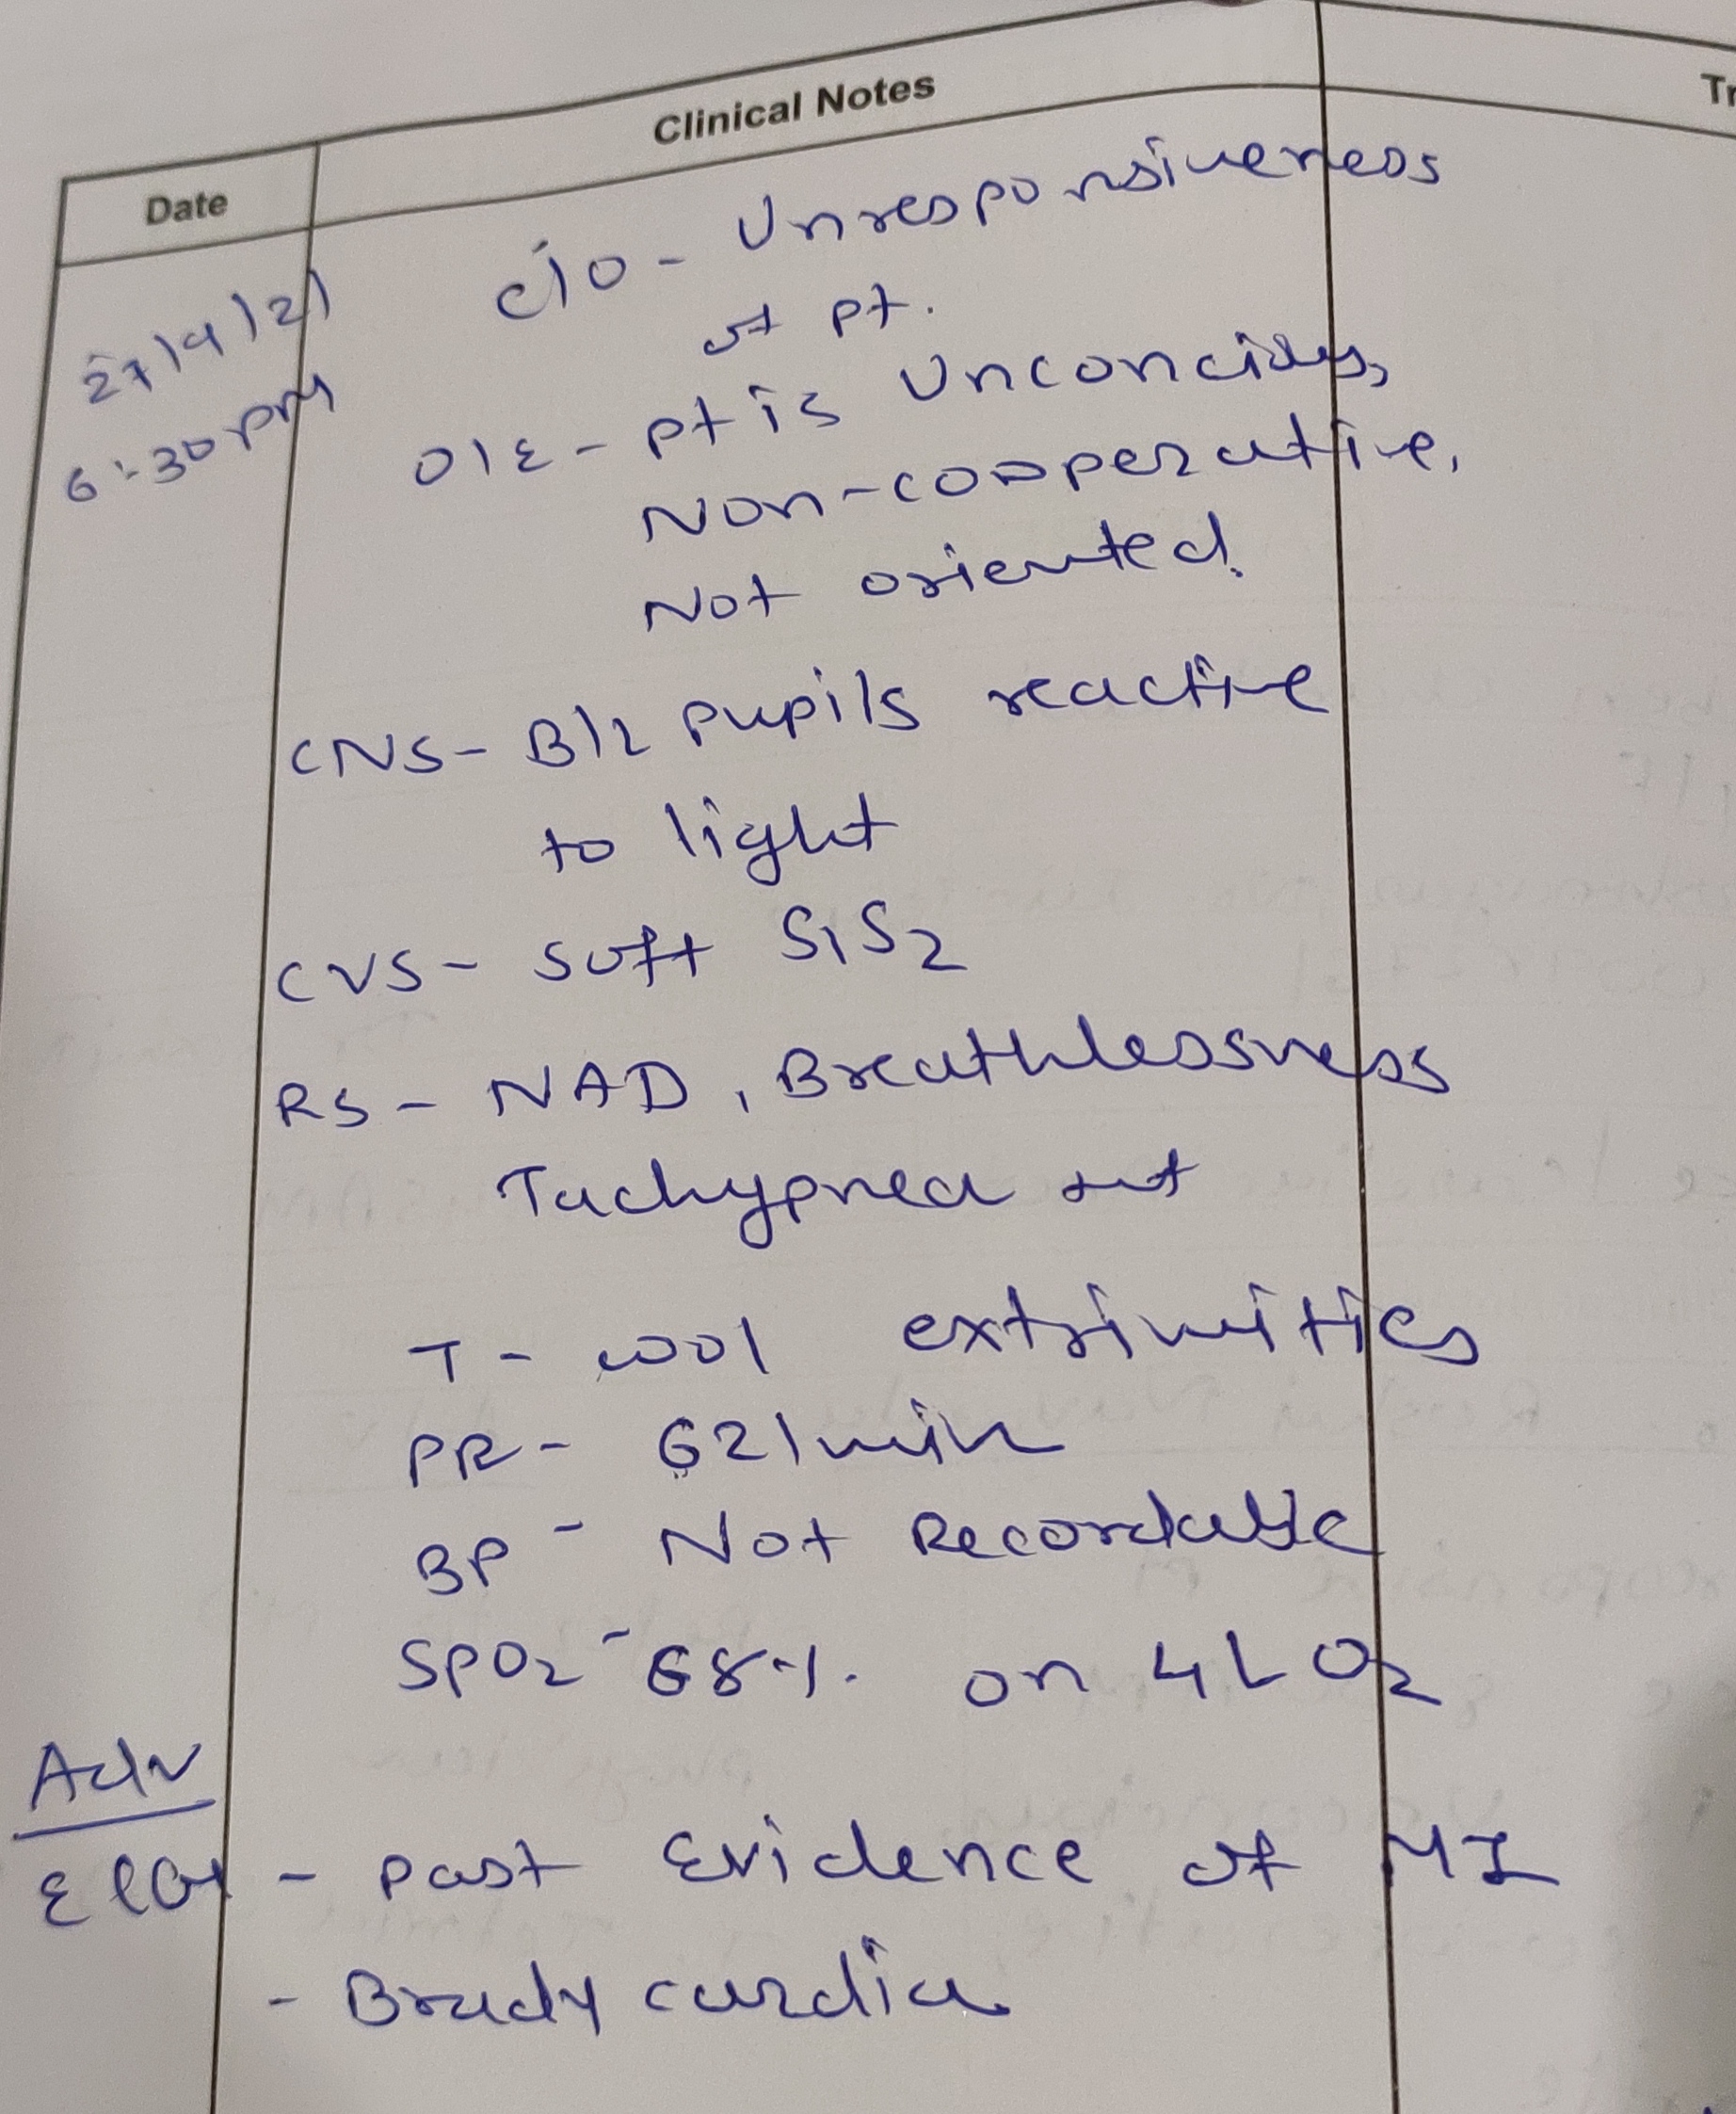 Date
Clinical Notes
Tr
27/4/21
6:30 PM
c/o - Unresponsiveness
of pt.
O/E - pt is Unconcious,
Non-cooperative,
Not oriented.
CNS - B/L pupils reactive
to light
CVS - soft S1S2
RS - NAD, Breathlessness
Tachypnea
T - cool extrimities
PR - 62/min
BP - Not Recordable
SPO2 - 68%. on 4L O2
Adv
ECG - past Evidence of MI
- Brady cardia